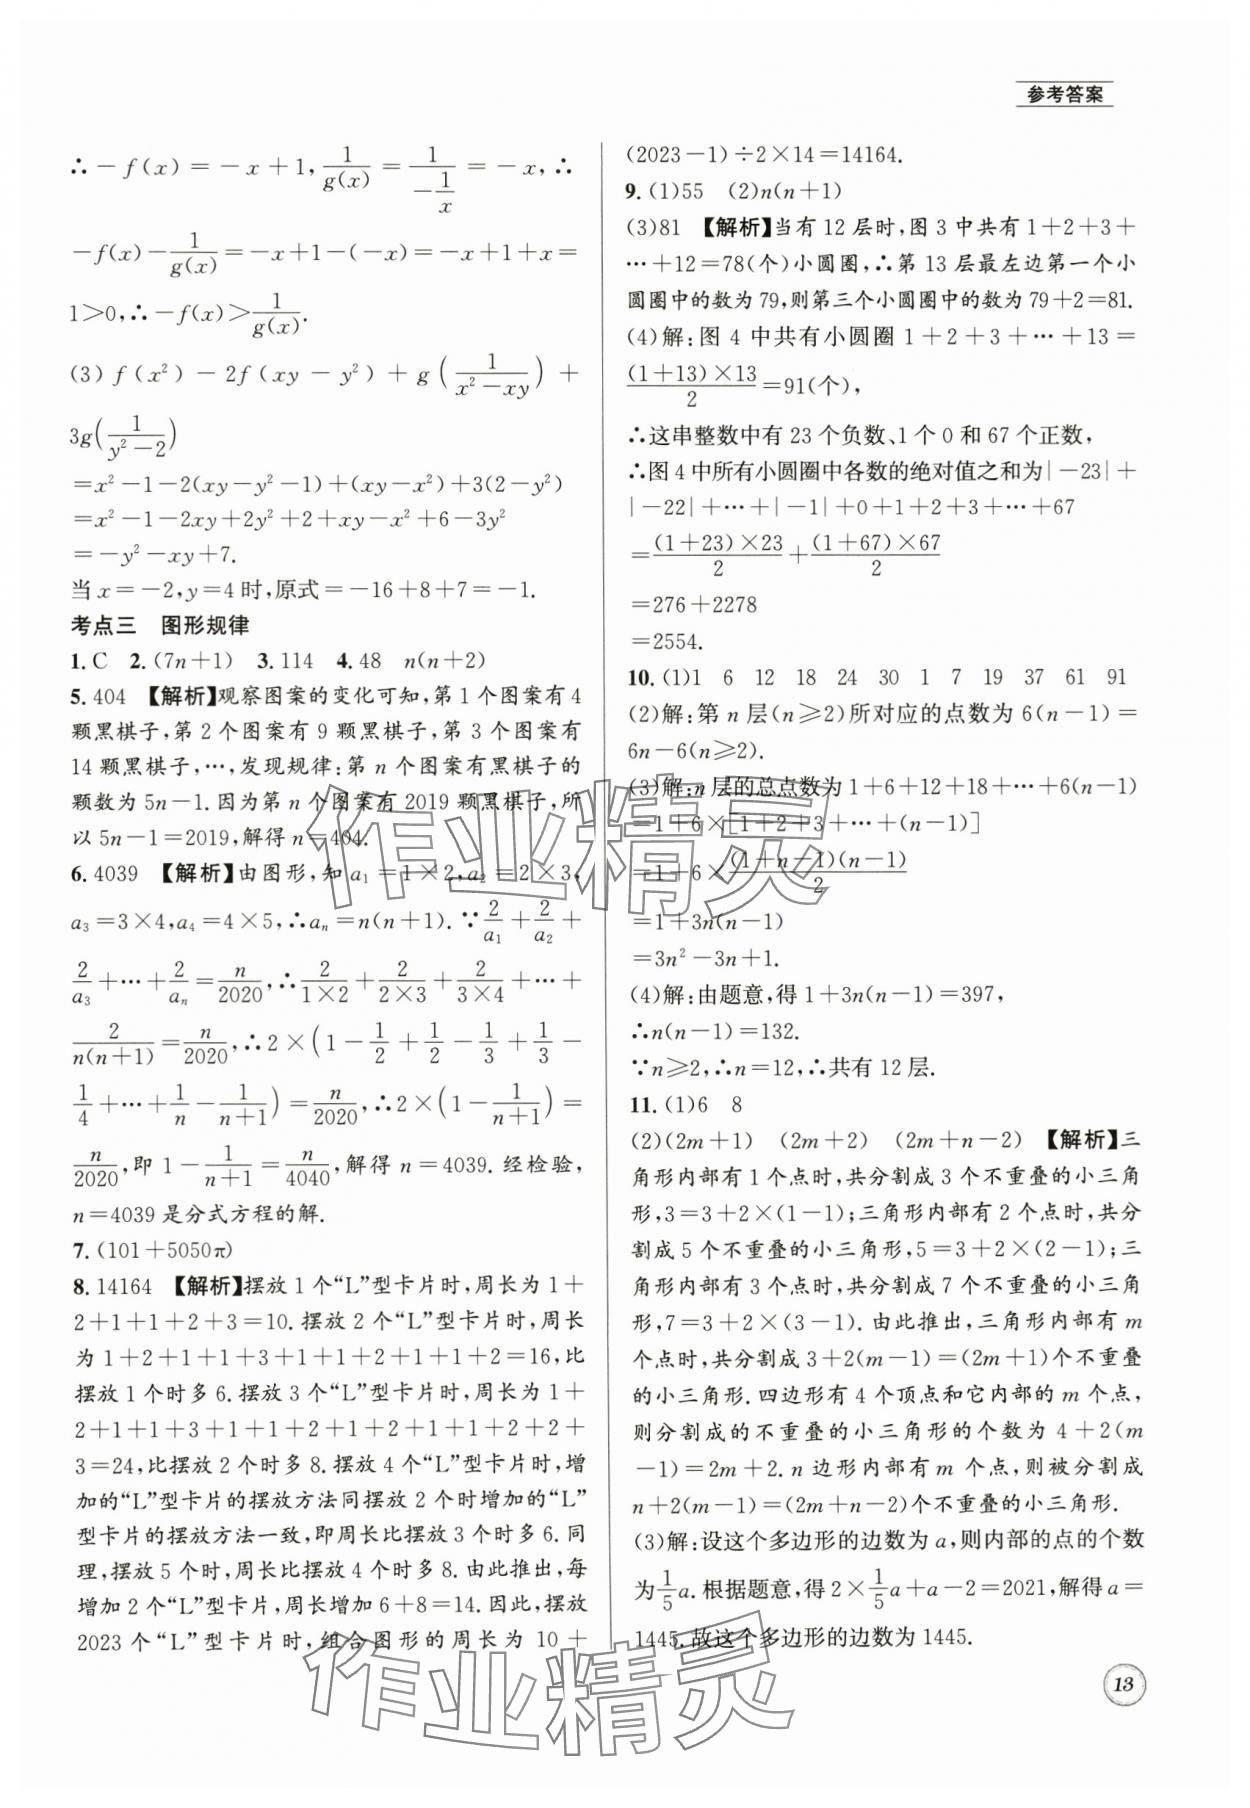 参考答案
∴－f(x)＝－x＋1, 1/g(x)＝1/(－1/x)＝－x, ∴
－f(x)－1/g(x)＝－x＋1－(－x)＝－x＋1＋x＝
1＞0, ∴－f(x)＞1/g(x).
(3) f(x²)－2f(xy－y²)＋g(1/(x²－xy))＋
3g(1/(y²－2))
＝x²－1－2(xy－y²－1)＋(xy－x²)＋3(2－y²)
＝x²－1－2xy＋2y²＋2＋xy－x²＋6－3y²
＝－y²－xy＋7.
当x＝－2,y＝4时,原式＝－16＋8＋7＝－1.
考点三 图形规律
1.C 2.(7n＋1) 3.114 4.48 n(n＋2)
5.404 【解析】观察图案的变化可知,第1个图案有4
颗黑棋子,第2个图案有9颗黑棋子,第3个图案有
14颗黑棋子,…,发现规律:第n个图案有黑棋子的
颗数为5n－1.因为第n个图案有2019颗黑棋子,所
以5n－1＝2019,解得n＝404.
6.4039 【解析】由图形,知a₁＝1×2,a₂＝2×3,
a₃＝3×4,a₄＝4×5,∴aₙ＝n(n＋1).∵2/a₁＋2/a₂＋
2/a₃＋…＋2/aₙ＝n/2020,∴2/(1×2)＋2/(2×3)＋2/(3×4)＋…＋
2/(n(n＋1))＝n/2020,∴2×(1－1/2＋1/2－1/3＋1/3－
1/4＋…＋1/n－1/(n＋1))＝n/2020,∴2×(1－1/(n＋1))＝
n/2020,即1－1/(n＋1)＝n/4040,解得n＝4039.经检验,
n＝4039是分式方程的解.
7.(101＋5050π)
8.14164 【解析】摆放1个“L”型卡片时,周长为1＋
2＋1＋1＋2＋3＝10.摆放2个“L”型卡片时,周长
为1＋2＋1＋1＋3＋1＋1＋2＋1＋1＋2＝16,比
摆放1个时多6.摆放3个“L”型卡片时,周长为1＋
2＋1＋1＋3＋1＋1＋2＋1＋2＋1＋1＋2＋2＋
3＝24,比摆放2个时多8.摆放4个“L”型卡片时,增
加的“L”型卡片的摆放方法同摆放2个时增加的“L”
型卡片的摆放方法一致,即周长比摆放3个时多6.同
理,摆放5个时,周长比摆放4个时多8.由此推出,每
增加2个“L”型卡片,周长增加6＋8＝14.因此,摆放
2023个“L”型卡片时,组合图形的周长为10＋
(2023－1)÷2×14＝14164.
9.(1)55 (2)n(n＋1)
(3)81 【解析】当有12层时,图3中共有1＋2＋3＋
…＋12＝78(个)小圆圈,∴第13层最左边第一个小
圆圈中的数为79,则第三个小圆圈中的数为79＋2＝81.
(4)解:图4中共有小圆圈1＋2＋3＋…＋13＝
(1＋13)×13/2＝91(个),
∴这串整数中有23个负数、1个0和67个正数,
∴图4中所有小圆圈中各数的绝对值之和为|－23|＋
|－22|＋…＋|－1|＋0＋1＋2＋3＋…＋67
＝(1＋23)×23/2＋(1＋67)×67/2
＝276＋2278
＝2554.
10.(1)1 6 12 18 24 30 1 7 19 37 61 91
(2)解:第n层(n≥2)所对应的点数为6(n－1)＝
6n－6(n≥2).
(3)解:n层的总点数为1＋6＋12＋18＋…＋6(n－1)
＝1＋6×[1＋2＋3＋…＋(n－1)]
＝1＋6×(1＋n－1)(n－1)/2
＝1＋3n(n－1)
＝3n²－3n＋1.
(4)解:由题意,得1＋3n(n－1)＝397,
∴n(n－1)＝132.
∵n≥2,∴n＝12,∴共有12层.
11.(1)6 8
(2)(2m＋1) (2m＋2) (2m＋n－2) 【解析】三
角形内部有1个点时,共分割成3个不重叠的小三角
形,3＝3＋2×(1－1);三角形内部有2个点时,共分
割成5个不重叠的小三角形,5＝3＋2×(2－1);三
角形内部有3个点时,共分割成7个不重叠的小三角
形,7＝3＋2×(3－1).由此推出,三角形内部有m
个点时,共分割成3＋2(m－1)＝(2m＋1)个不重叠
的小三角形.四边形有4个顶点和它内部的m个点,
则分割成的不重叠的小三角形的个数为4＋2(m
－1)＝2m＋2.n边形内部有m个点,则被分割成
n＋2(m－1)＝(2m＋n－2)个不重叠的小三角形.
(3)解:设这个多边形的边数为a,则内部的点的个数
为1/5a.根据题意,得2×1/5a＋a－2＝2021,解得a＝
1445.故这个多边形的边数为1445.
作业精灵
作业精灵
13